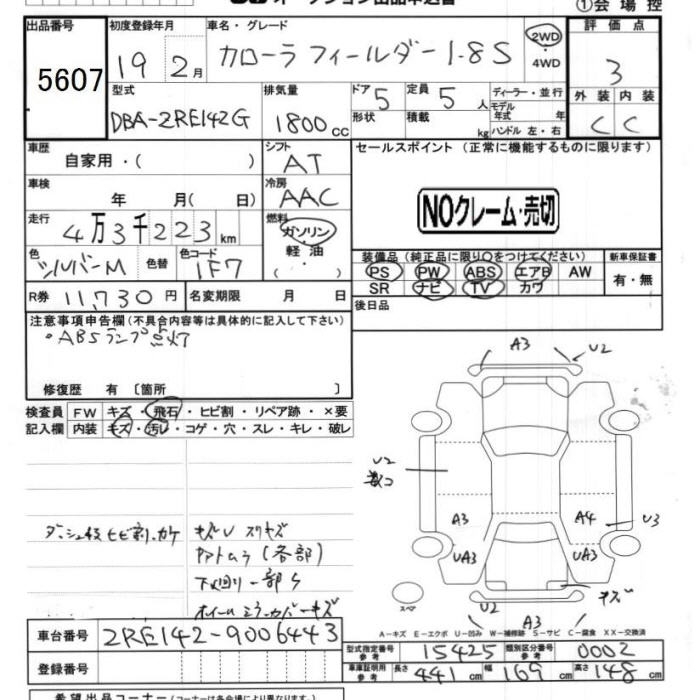 ①会場控
出品番号 初度登録年月 車名・グレード 評価点
5607 19年2月 カローラ フィールダー 1.8S 2WD・4WD 3
型式 排気量 ドア 定員 ディーラー・並行
DBA-ZRE142G 1800cc 5 5人 モデル年式 年
形状 積載 kg ハンドル 左・右
外装 内装
C C
車歴 シフト セールスポイント (正常に機能するものに限ります)
自家用・( ) AT
車検 冷房
年 月( 日) AAC
NOクレーム・売切
走行 燃料
4万3千223km ガソリン・軽油・( )
色 色替 色コード
シルバーM 1F7
装備品(純正品に限り○をつけてください) 新車保証書
PS PW ABS エアB AW 有・無
SR ナビ TV カワ
R券 11,730円 名変期限 月 日
後日品
注意事項申告欄(不具合内容等は具体的に記入して下さい)
・ABSランプ点灯
修復歴 有〔箇所 〕
検査員 FW キズ・飛石・ヒビ割・リペア跡・×要
記入欄 内装 キズ・汚レ・コゲ・穴・スレ・キレ・破レ
A3 U2
U2
A3 A4 U3
UA3 UA3
キズ
スペア
U2 A3
キズU スリキズ
(各部)
下廻り一部S
ホイール ミラーカバーキズ
A-キズ E-エクボ U-凹み W-補修跡 S-サビ C-腐食 XX-交換済
車台番号 ZRE142-9006443
登録番号
型式指定番号 参考 15425 類別区分番号 参考 0002
車庫証明用 参考 長さ 441cm 幅 169cm 高さ 148cm
希望出品コーナー